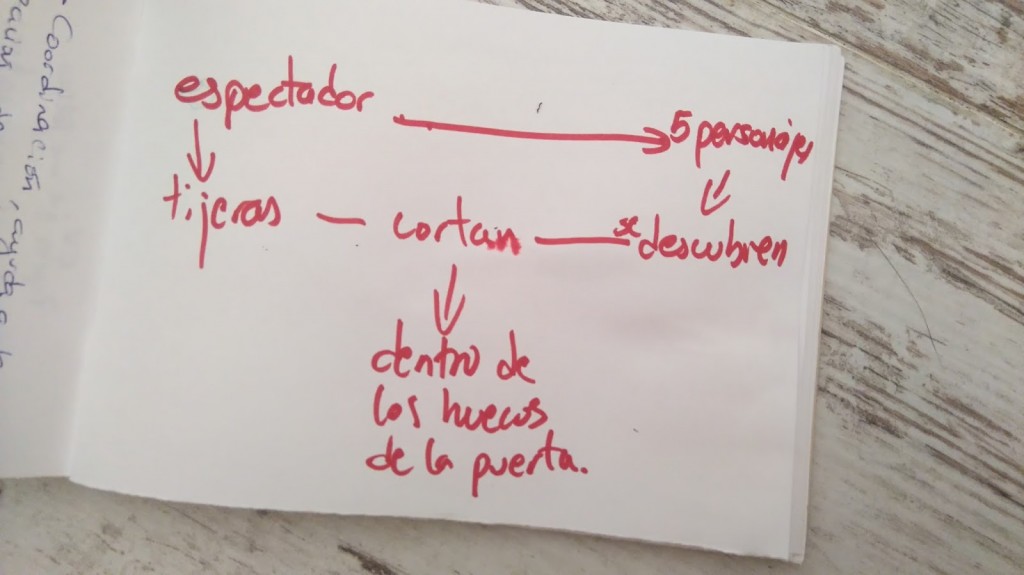 espectador
5 personajes
tijeras cortan se descubren
dentro de
los huecos
de la puerta.
Coordinación, ayuda a la